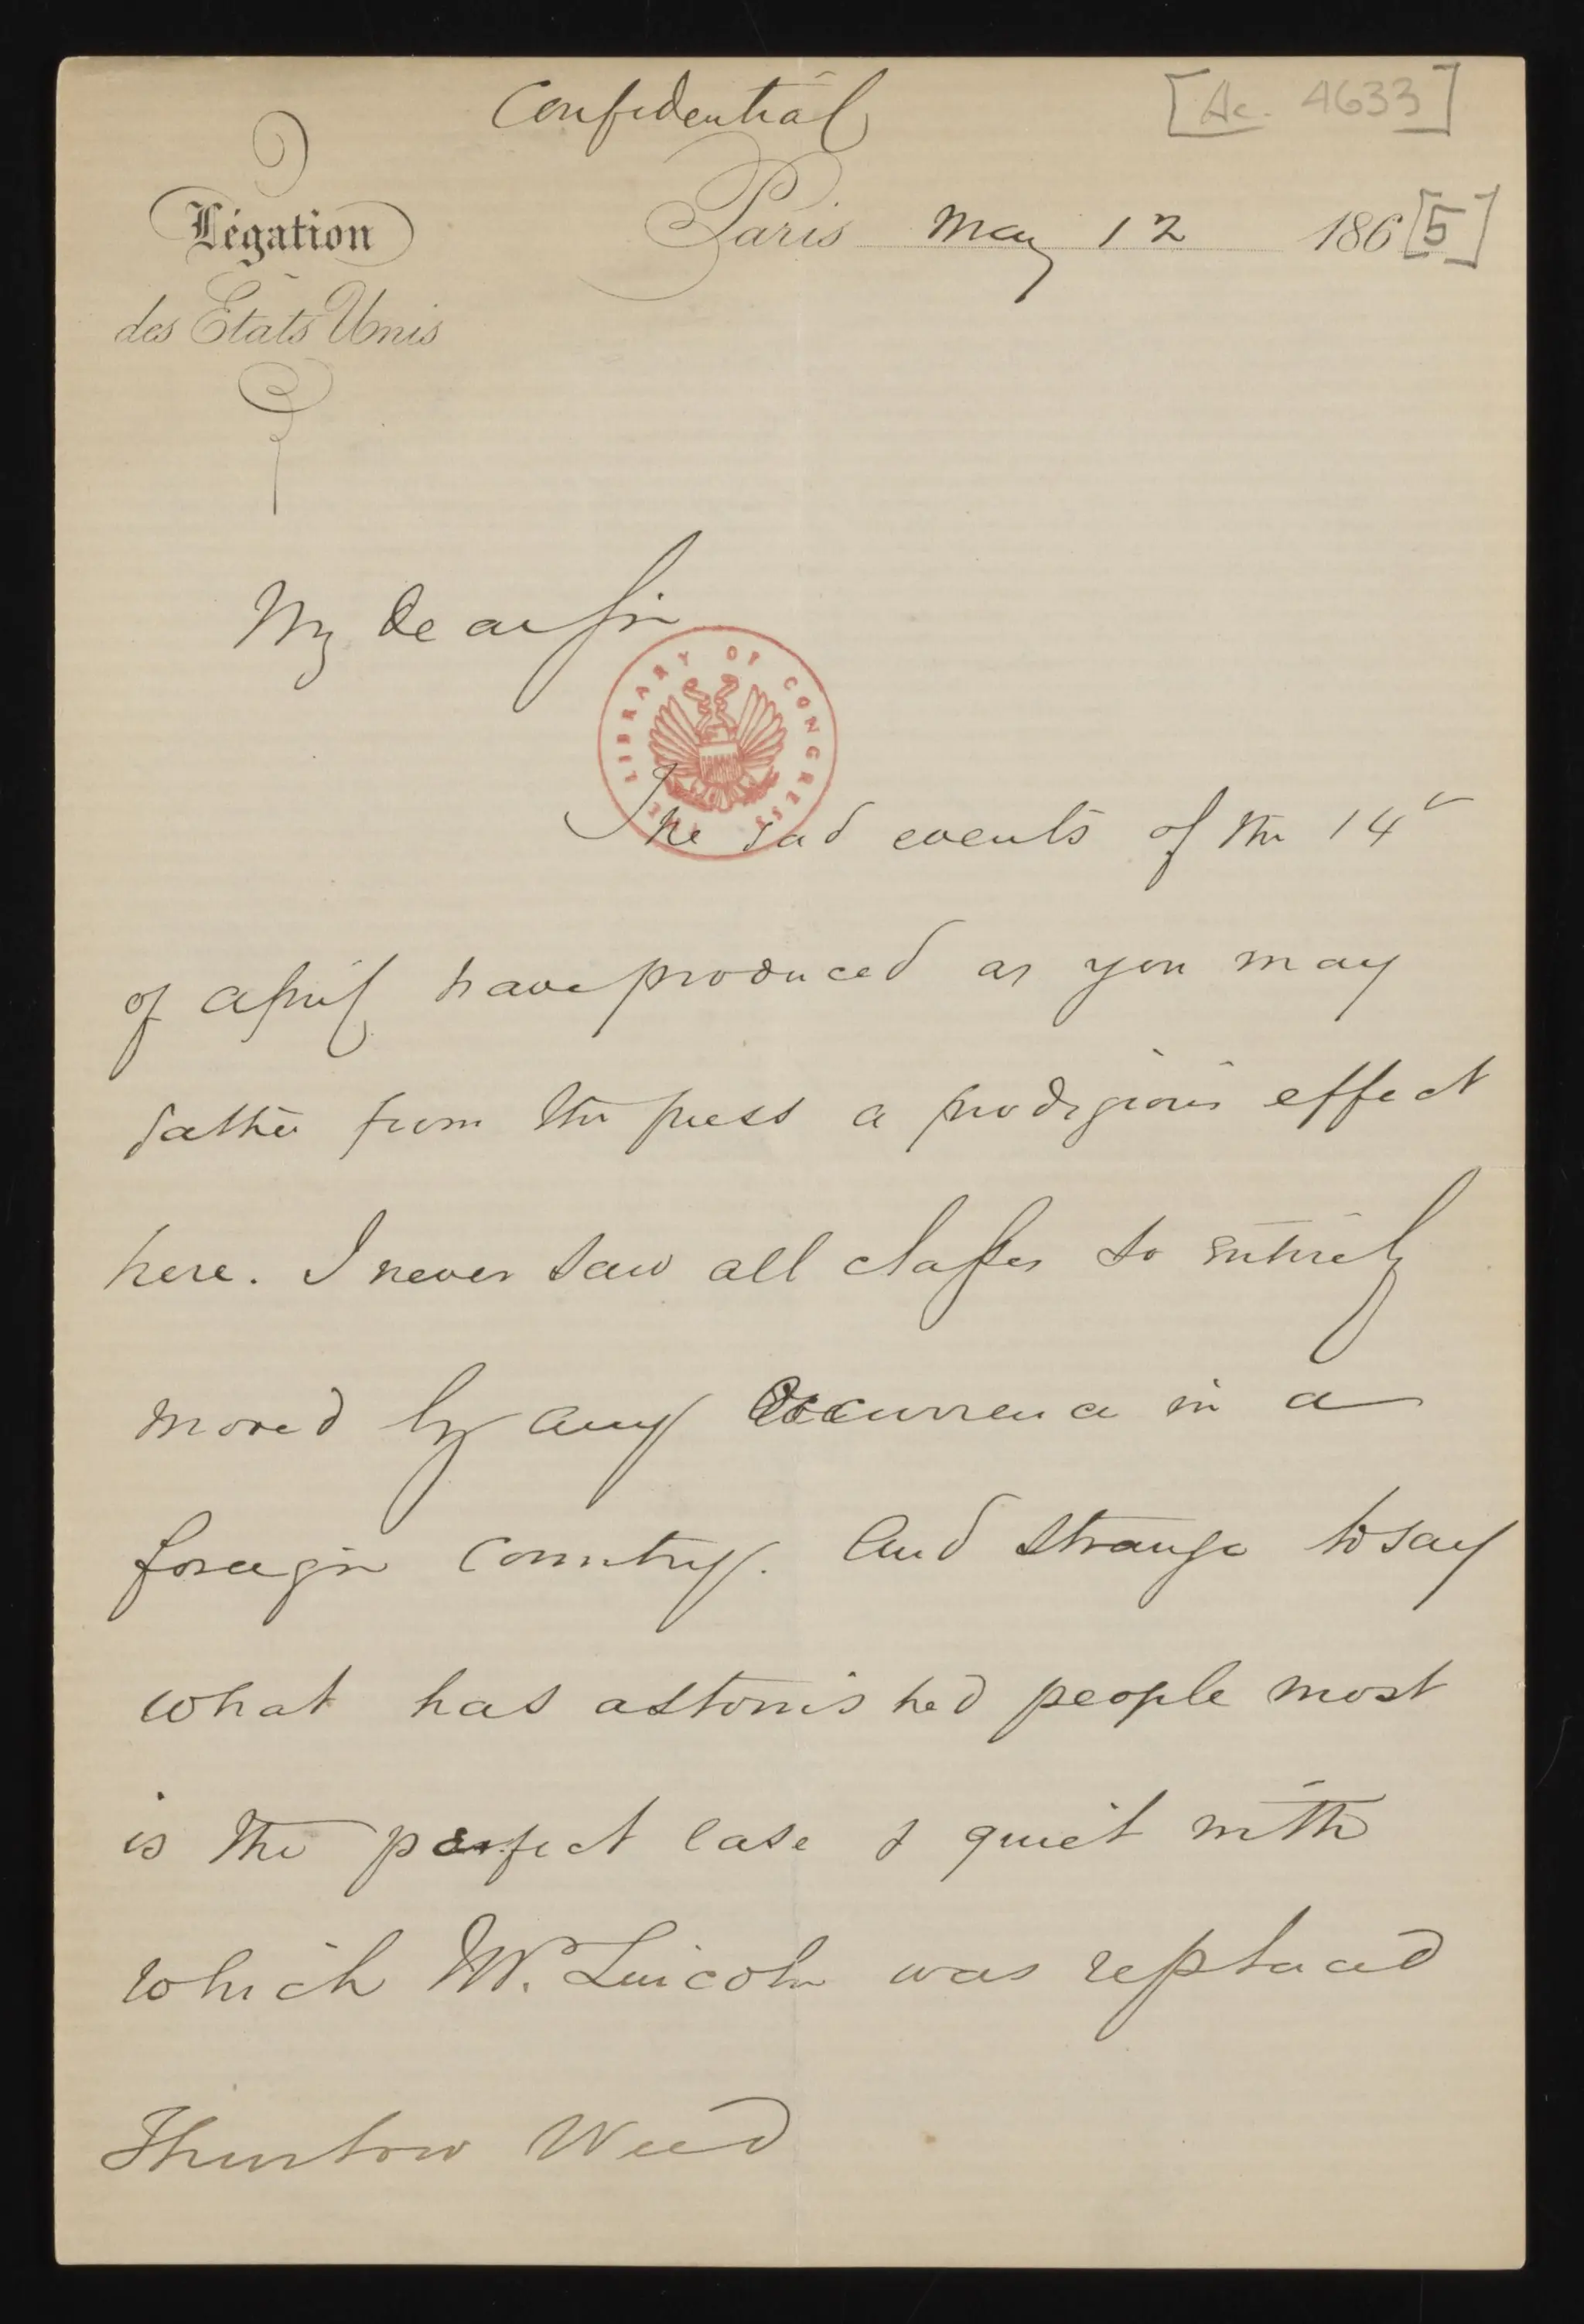 Confidential
[Ac. 4633]
Légation
des États Unis
Paris May 12 186[5]
My dear Sir
THE LIBRARY OF CONGRESS
The sad events of the 14"
of April have produced as you may
gather from the press a prodigious effect
here. I never saw all classes so entirely
moved by any occurrence in a
foreign country. And strange to say
what has astonished people most
is the perfect ease & quiet with
which Mr. Lincoln was replaced
Thurlow Weed